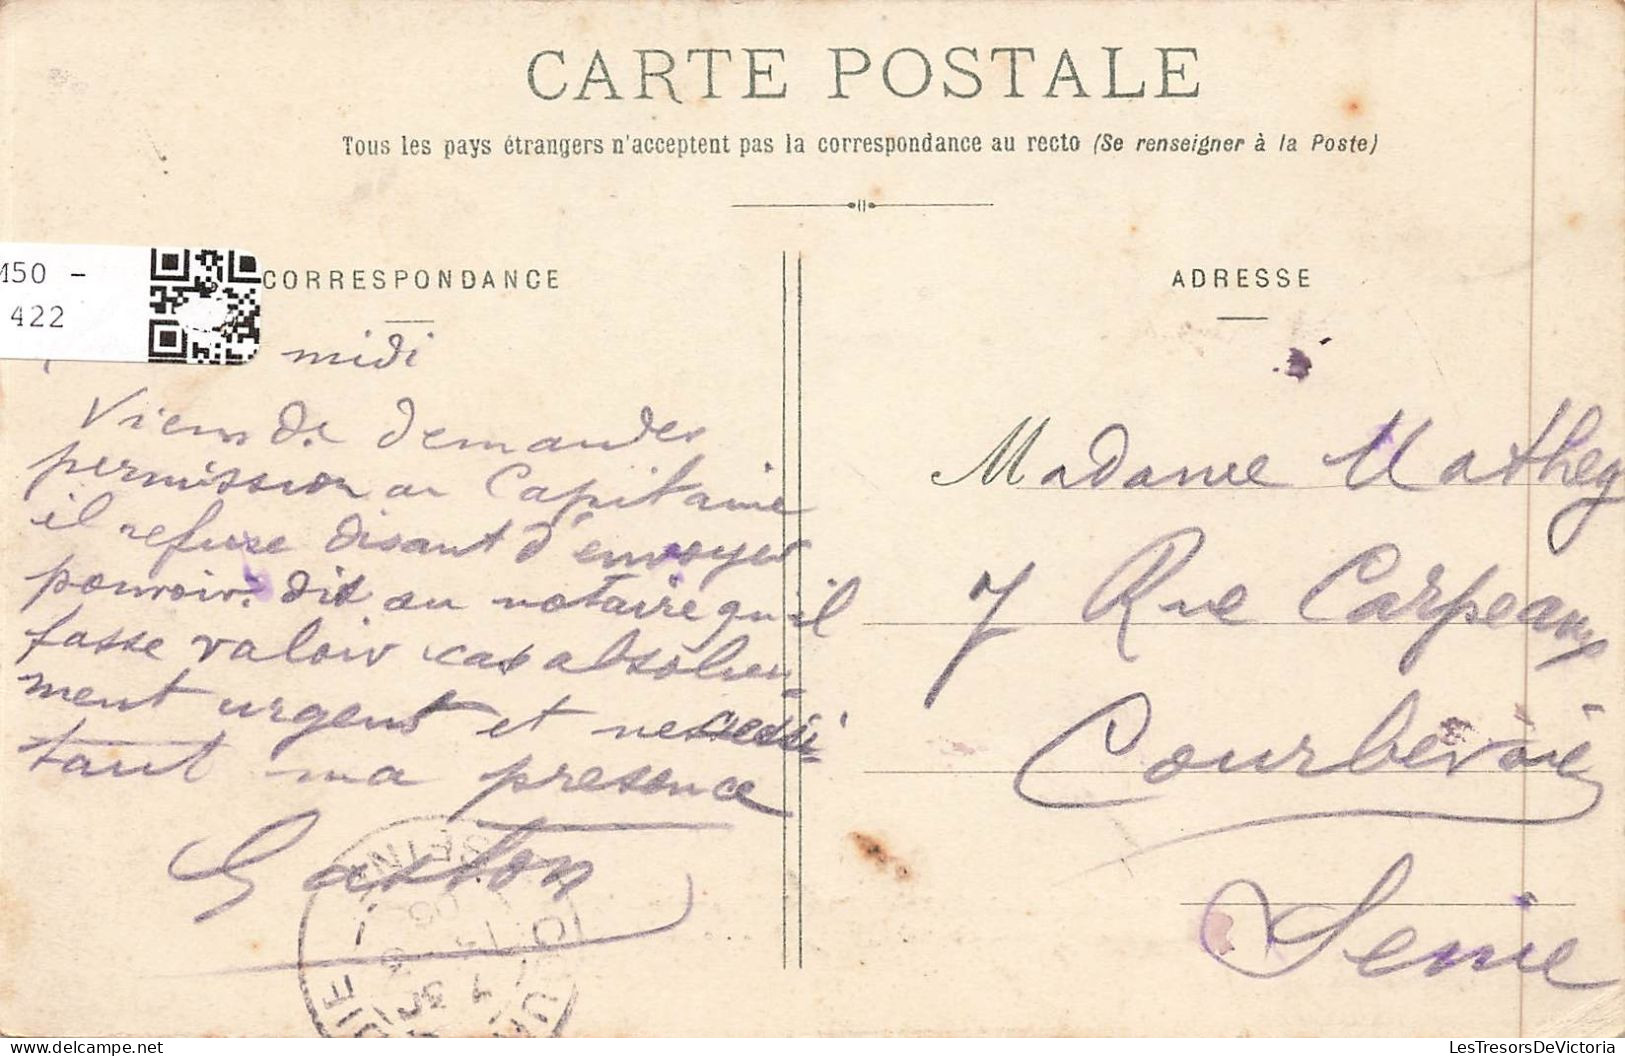 CARTE POSTALE
Tous les pays étrangers n'acceptent pas la correspondance au recto (Se renseigner à la Poste)
CORRESPONDANCE
ADRESSE
150 -
422
midi
Viens de demander
permission au Capitaine
il refuse disant d'envoyer
pouvoir. dit au notaire qu'il
fasse valoir cas absolu-
ment urgent et necessi-
tant ma presence
Gaston
Madame Mathey
7 Rue Carpeaux
Courbevoie
Seine
LesTresorsDeVictoria